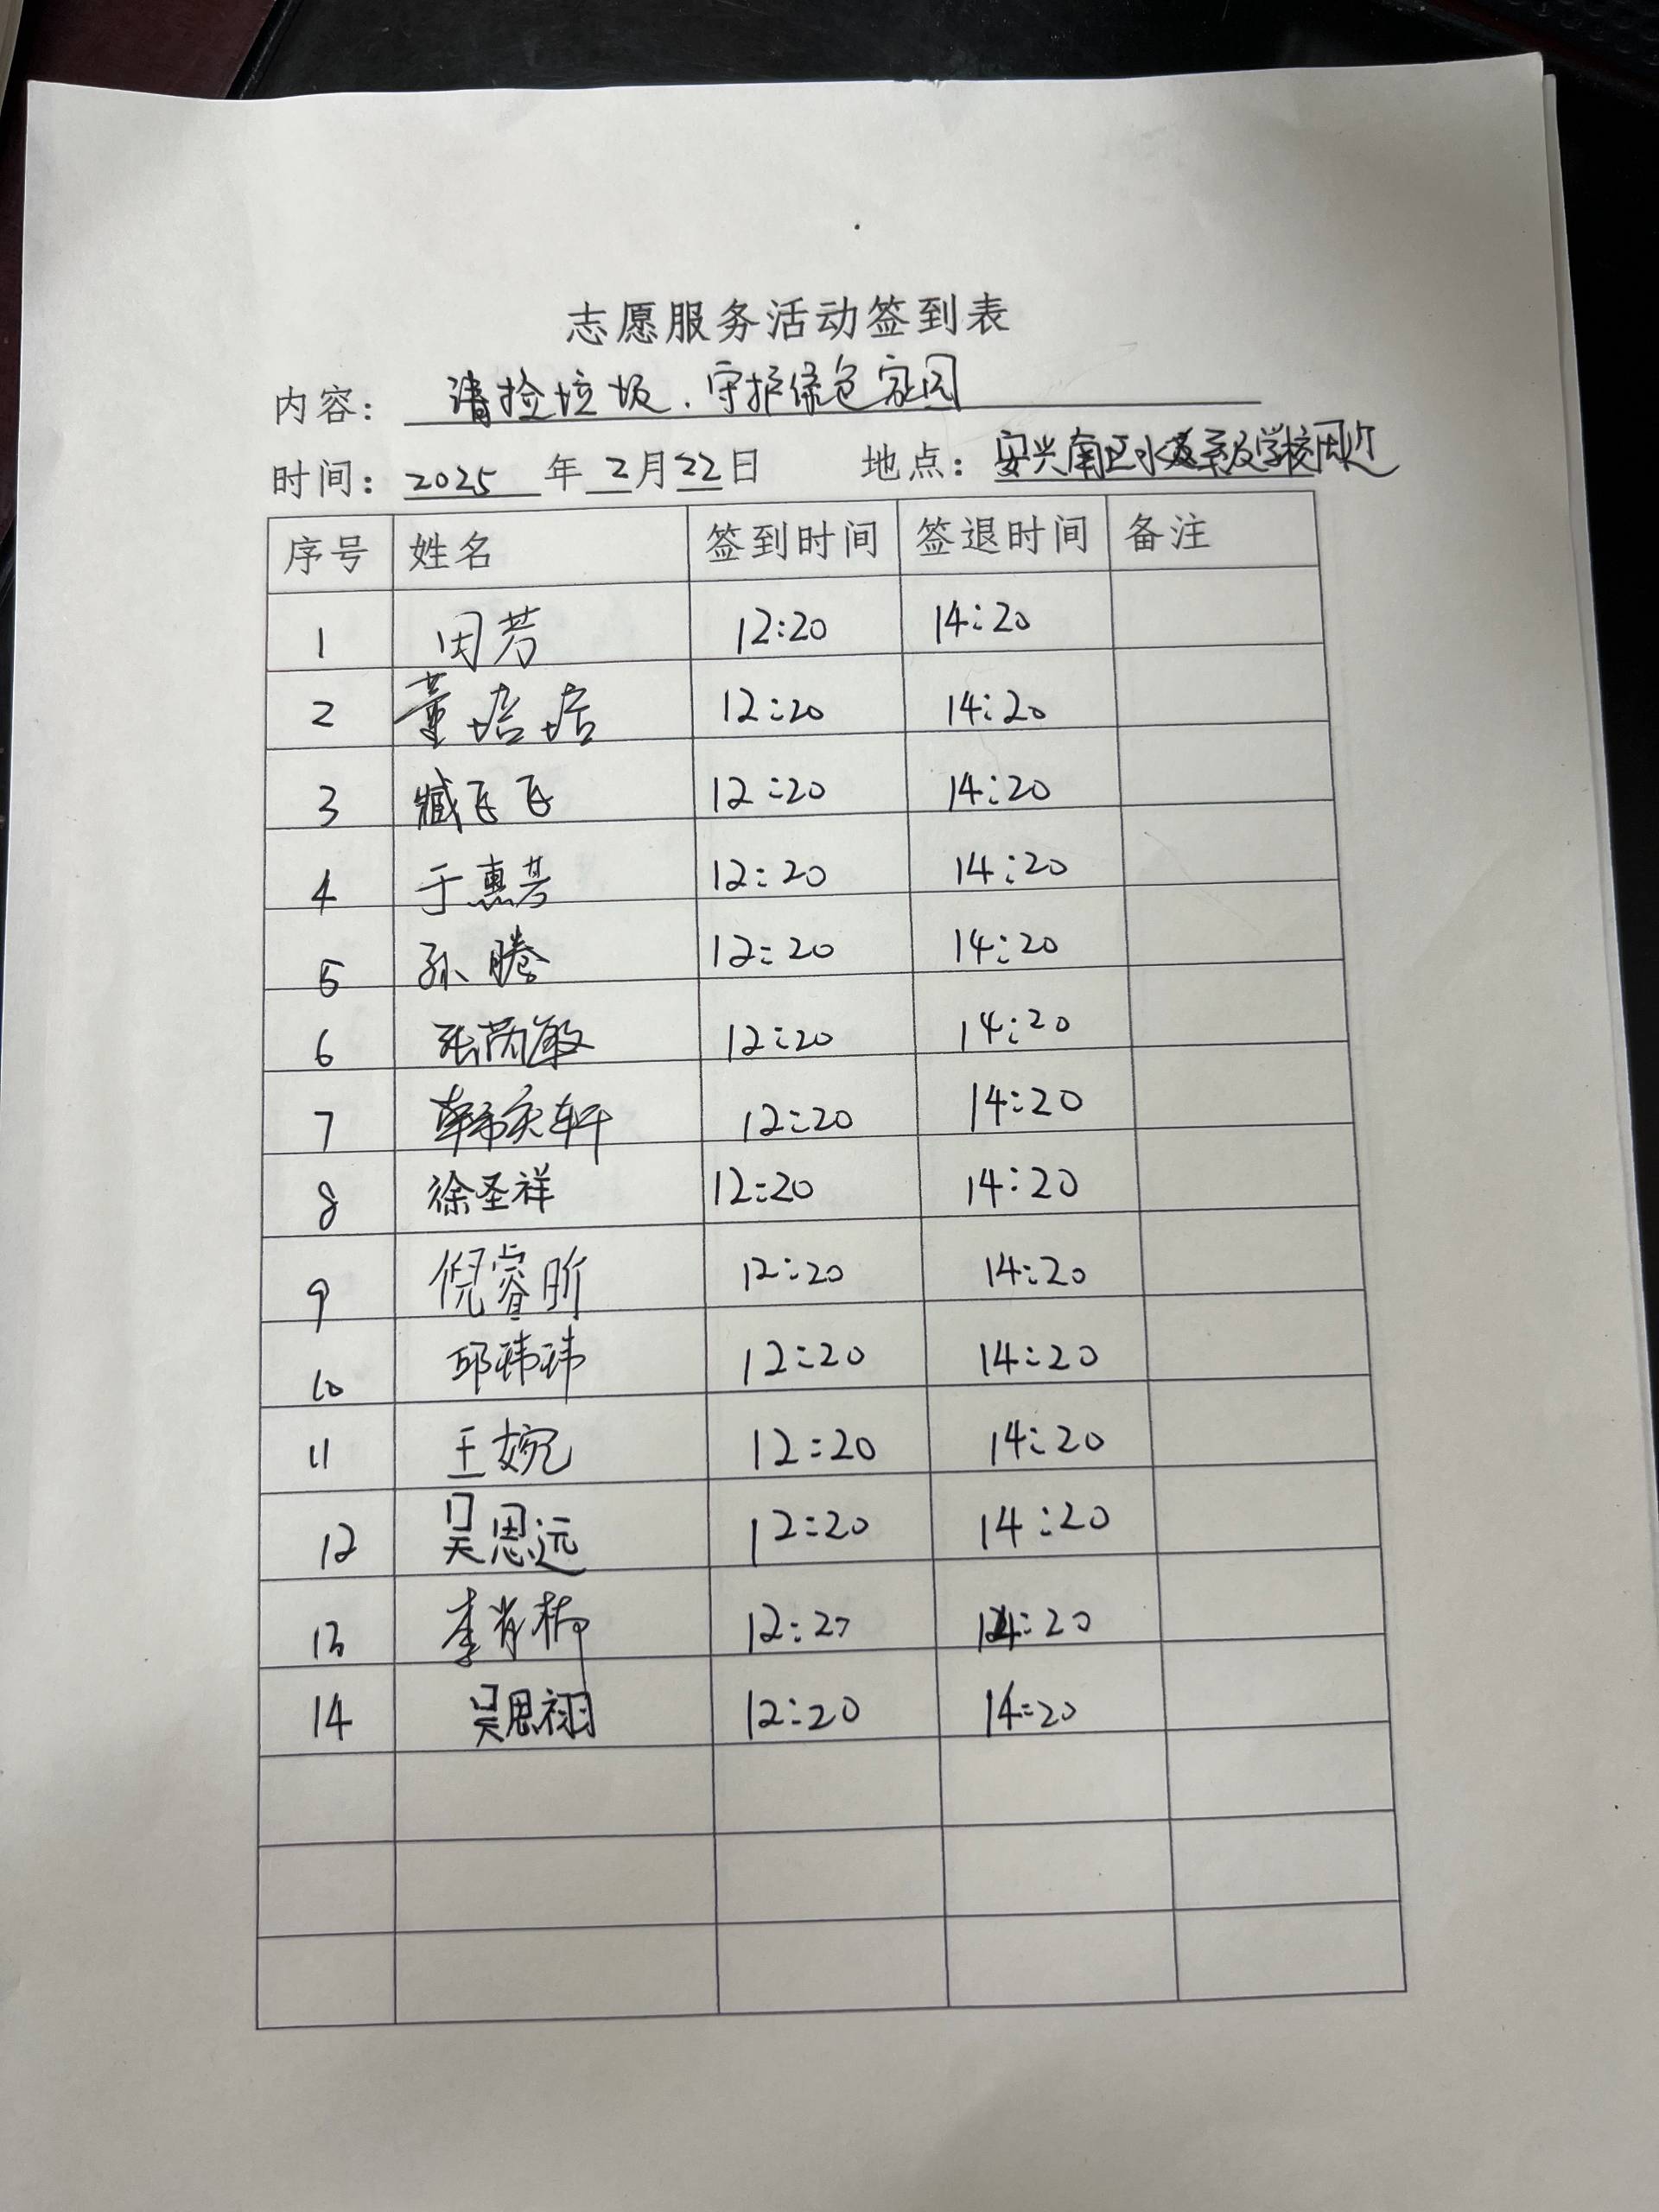 志愿服务活动签到表
内容: 清捡垃圾、守护绿色家园
时间: 2025 年 2月22日 地点: 安兴南区水系及学校周边
序号 姓名 签到时间 签退时间 备注
1 田芳 12:20 14:20
2 董培培 12:20 14:20
3 臧飞飞 12:20 14:20
4 于惠芳 12:20 14:20
5 孙腾 12:20 14:20
6 张芮敏 12:20 14:20
7 韩轩 12:20 14:20
8 徐圣祥 12:20 14:20
9 倪睿昕 12:20 14:20
10 邱玮玮 12:20 14:20
11 王婉 12:20 14:20
12 吴思远 12:20 14:20
13 李肖楠 12:20 14:20
14 吴思翊 12:20 14:20